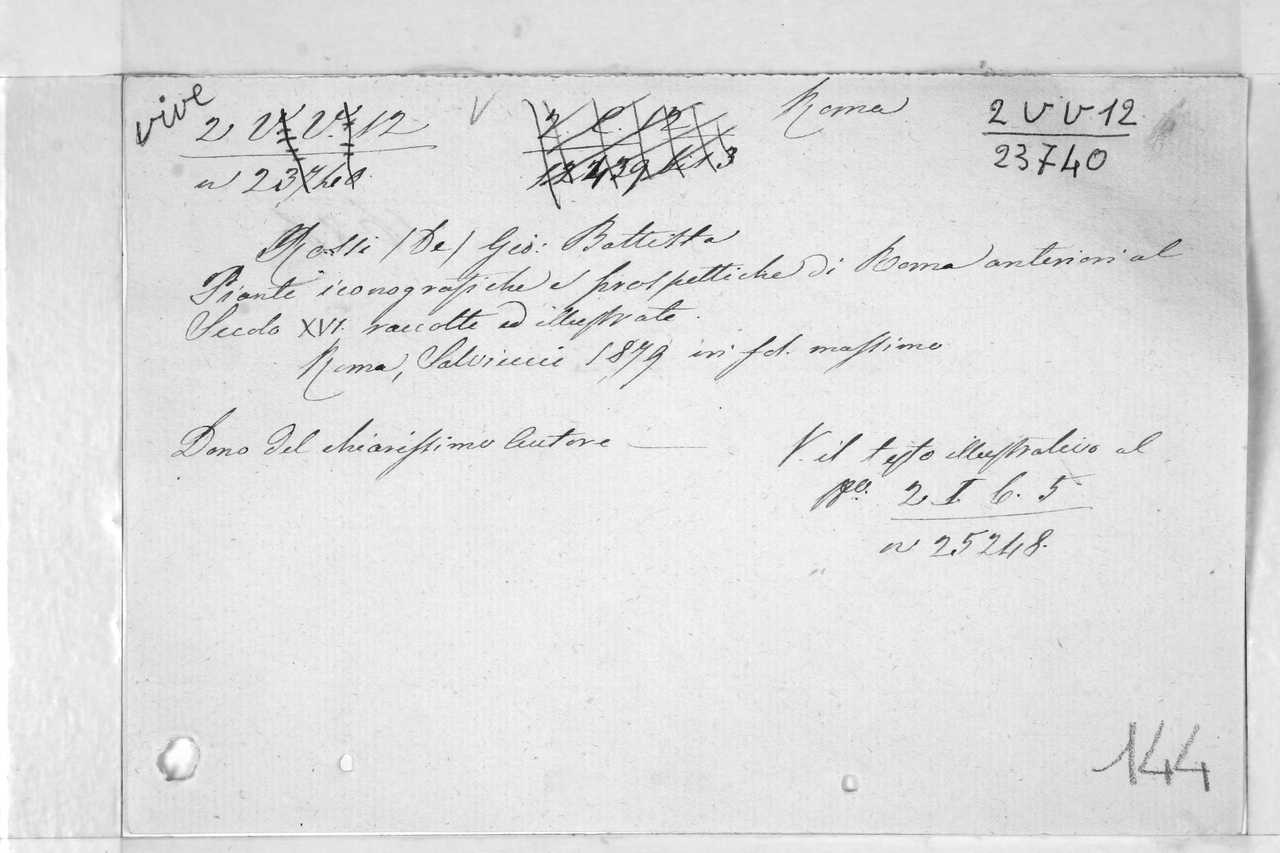 vive
2 V V 12
n 23740
V
Roma
2 V V 12
23740
Rossi (De) Gio: Battista
Piante iconografiche e prospettiche di Roma anteriori al
Secolo XVI. raccolte ed illustrate.
Roma, Salviucci 1879 in fol. massimo
Dono del chiarissimo Autore
V. il testo illustrativo al
2 I b. 5
n 25248.
144